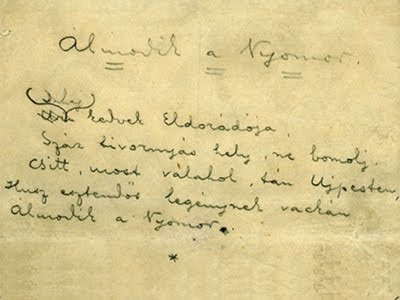 Álmodik a Nyomor.
Duhaj
kedvek Eldorádója,
Száz tivornyás hely, ne bomolj.
Csitt, most válahol, tán Ujpesten,
Husz esztendős legénynek vackán
Álmodik a Nyomor.
*